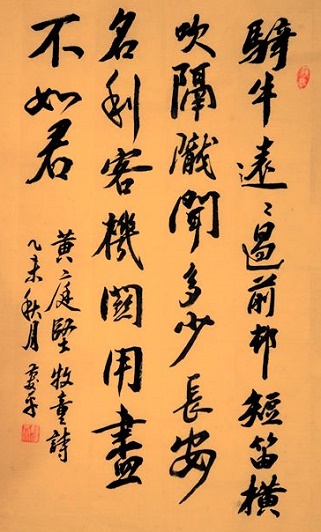 騎牛遠〻過前邨短笛橫
吹隔隴聞多少長安
名利客機關用盡
不如君
黃庭堅牧童詩
乙未秋月